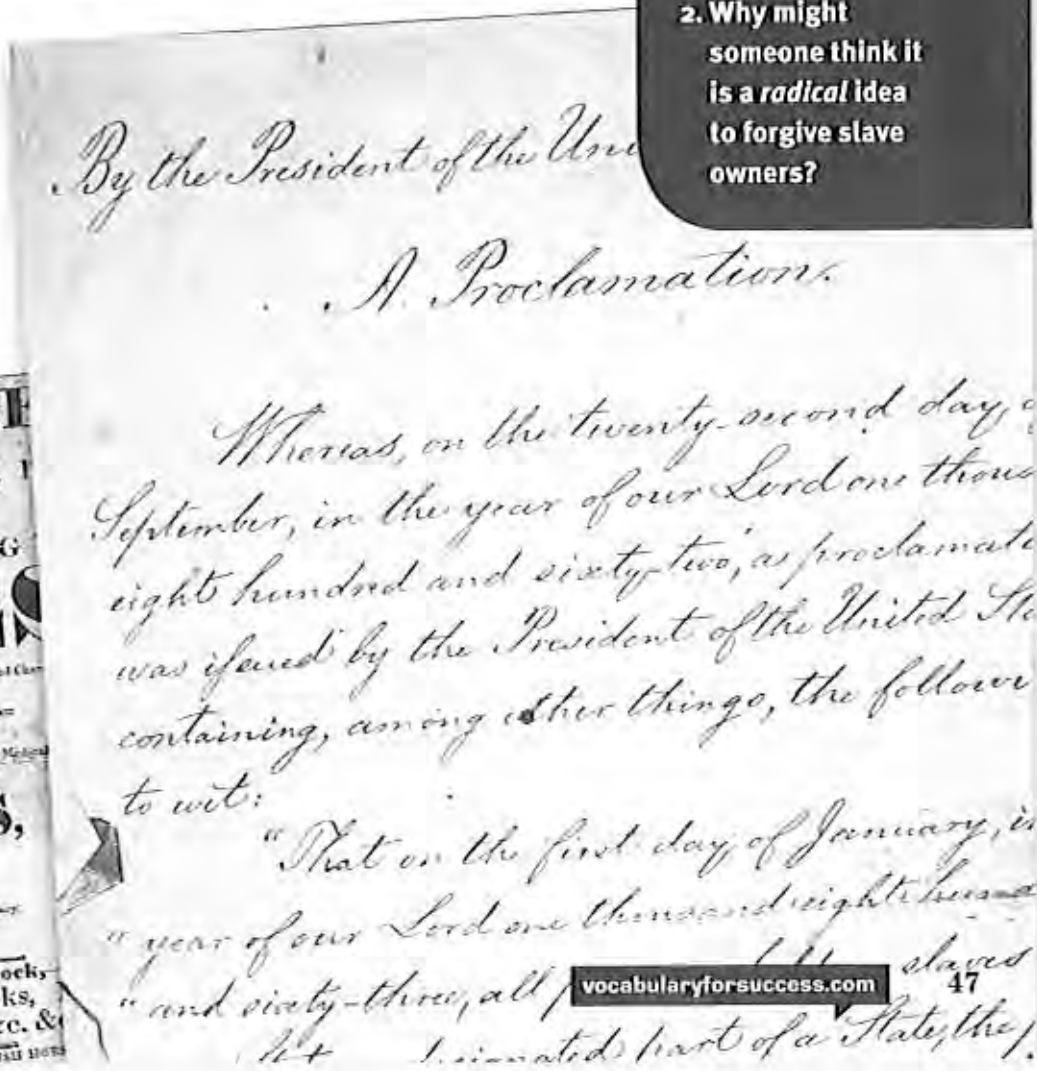 2. Why might
someone think it
is a radical idea
to forgive slave
owners?
By the President of the Uni
A Proclamation.
Whereas, on the twenty-second day
September, in the year of our Lord one thous
eight hundred and sixty-two, a proclamati
was issued by the President of the United Sta
containing, among other things, the followi
to wit:
"That on the first day of January, in
" year of our Lord one thousand eight hund
" and sixty-three, all slaves
designated part of a State, the
vocabularyforsuccess.com 47
G
S,
ock,
ks,
c. &